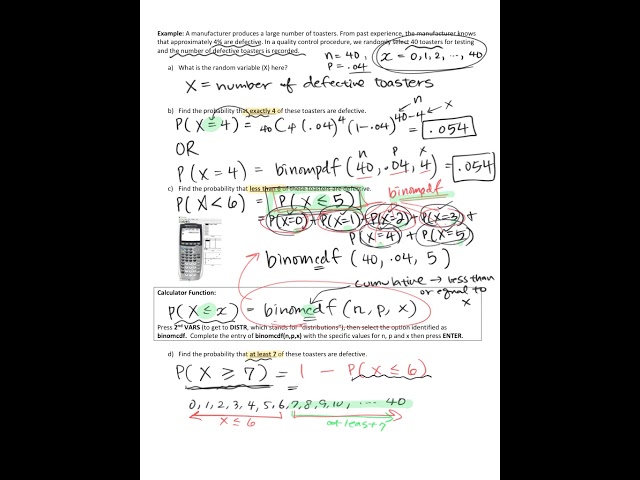 Example: A manufacturer produces a large number of toasters. From past experience, the manufacturer knows
that approximately 4% are defective. In a quality control procedure, we randomly select 40 toasters for testing
and the number of defective toasters is recorded.
n = 40,
p = .04
x = 0, 1, 2, ..., 40
a) What is the random variable (X) here?
X = number of defective toasters
b) Find the probability that exactly 4 of these toasters are defective.
P(X = 4) = 40C4 (.04)^4 (1-.04)^40-4 = .054
n
x
OR
n p x
P(X = 4) = binompdf (40, .04, 4) = .054
c) Find the probability that less than 6 of these toasters are defective.
binompdf
P(X < 6) = P(X ≤ 5)
= P(X=0) + P(X=1) + P(X=2) + P(X=3) +
P(X=4) + P(X=5)
binomcdf (40, .04, 5)
cumulative → less than
or equal to
x
Calculator Function:
P(X ≤ x) = binomcdf (n, p, x)
Press 2nd VARS (to get to DISTR, which stands for "distributions"), then select the option identified as
binomcdf. Complete the entry of binomcdf(n,p,x) with the specific values for n, p and x then press ENTER.
d) Find the probability that at least 7 of these toasters are defective.
P(X ≥ 7) = 1 - P(X ≤ 6)
0, 1, 2, 3, 4, 5, 6, 7, 8, 9, 10, ... 40
X ≤ 6
at least 7